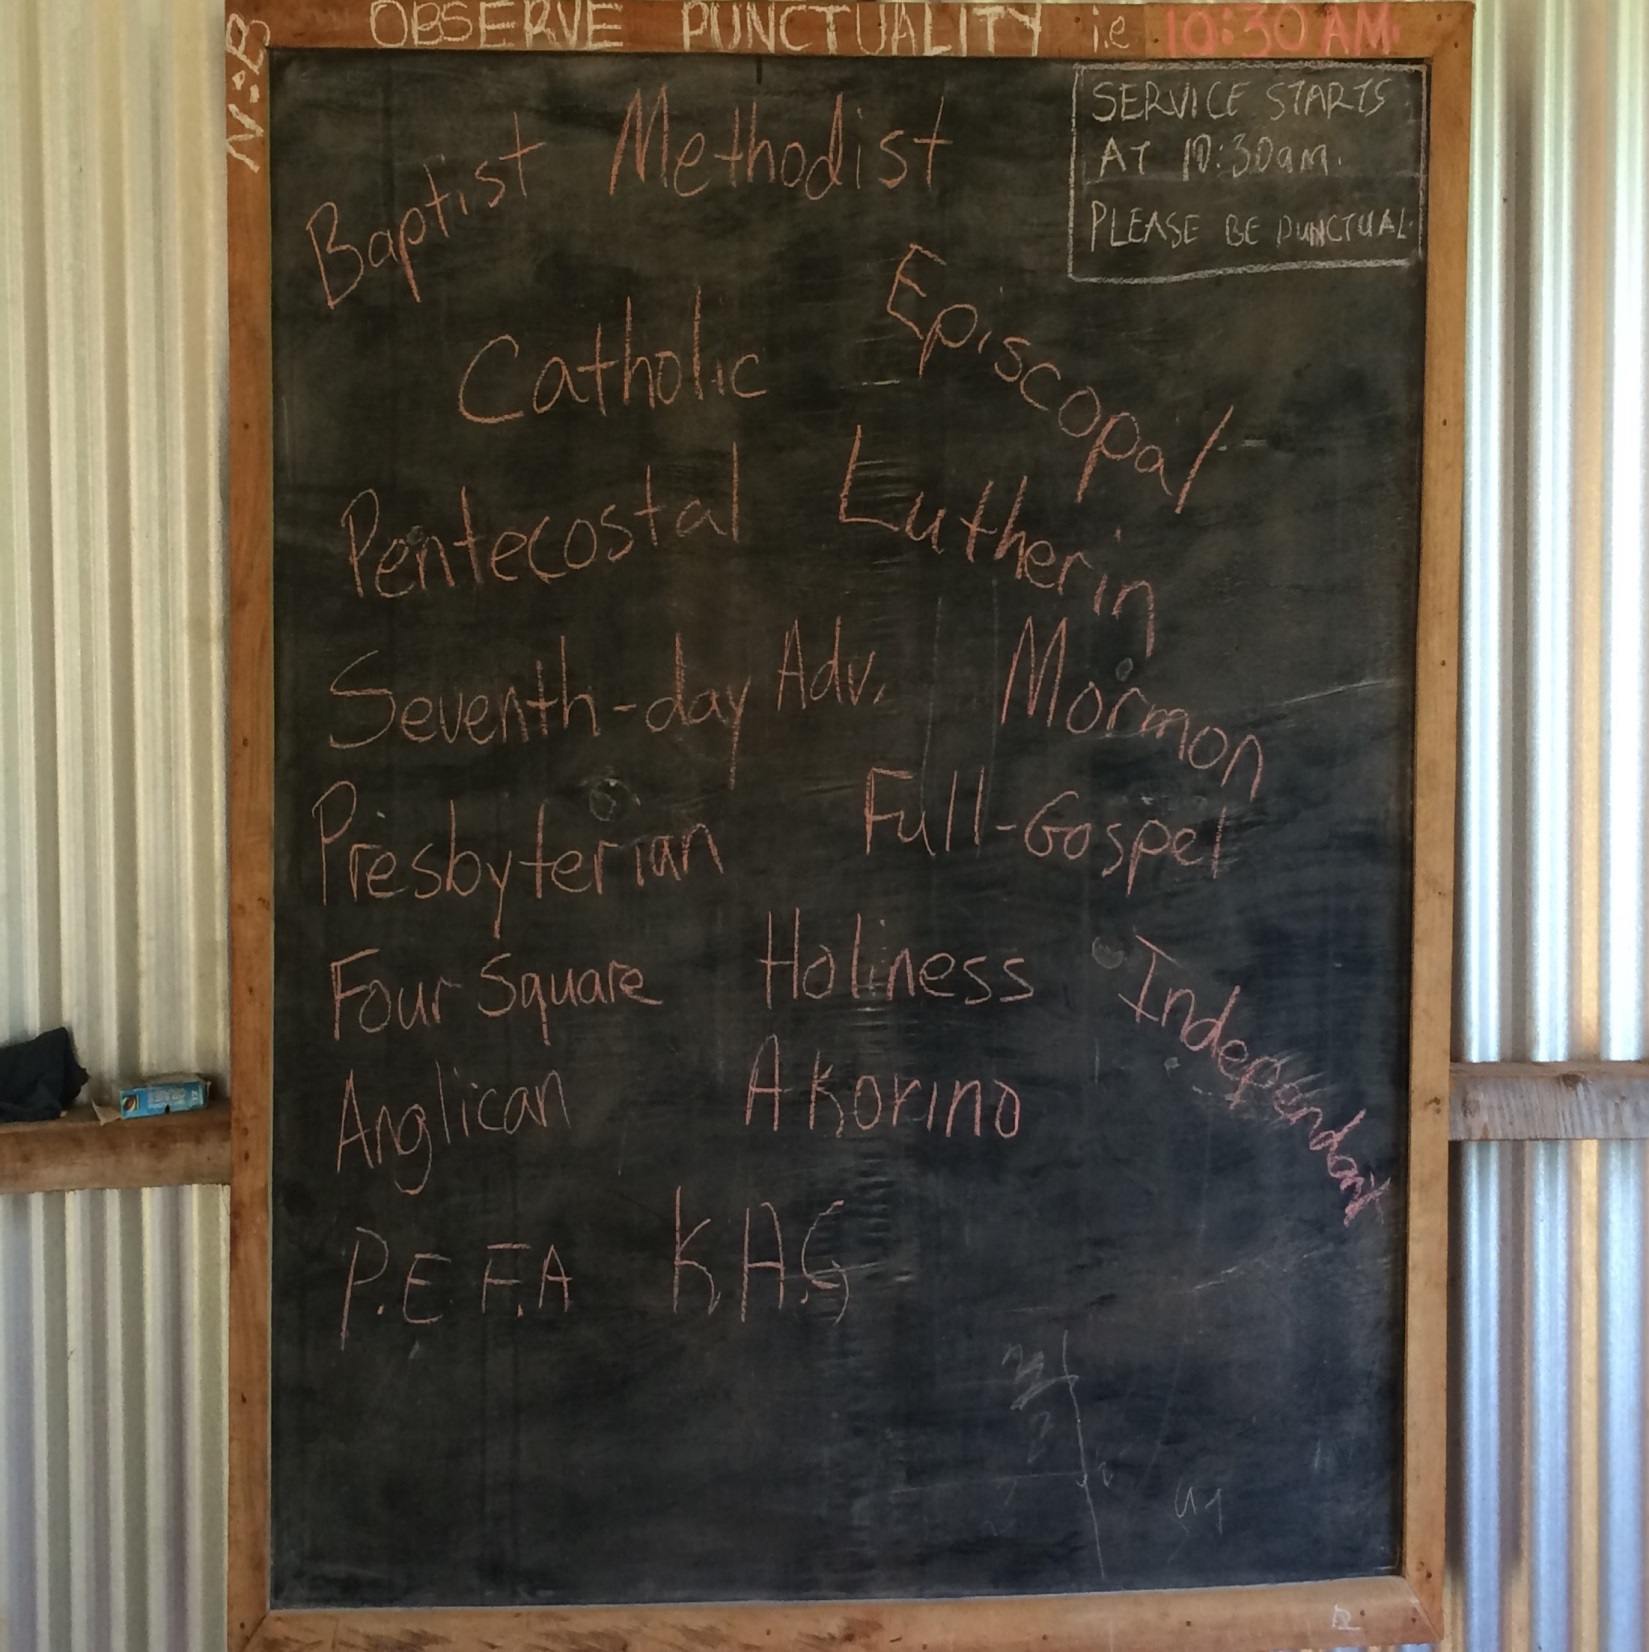 N:B OBSERVE PUNCTUALITY i.e 10:30 AM.
SERVICE STARTS
AT 10:30am.
PLEASE BE PUNCTUAL.
Baptist Methodist
Catholic Episcopal
Pentecostal Lutherin
Seventh-day Adv. Mormon
Presbyterian Full-Gospel
Four Square Holiness Independant
Anglican Akorino
P.E.F.A K.A.G